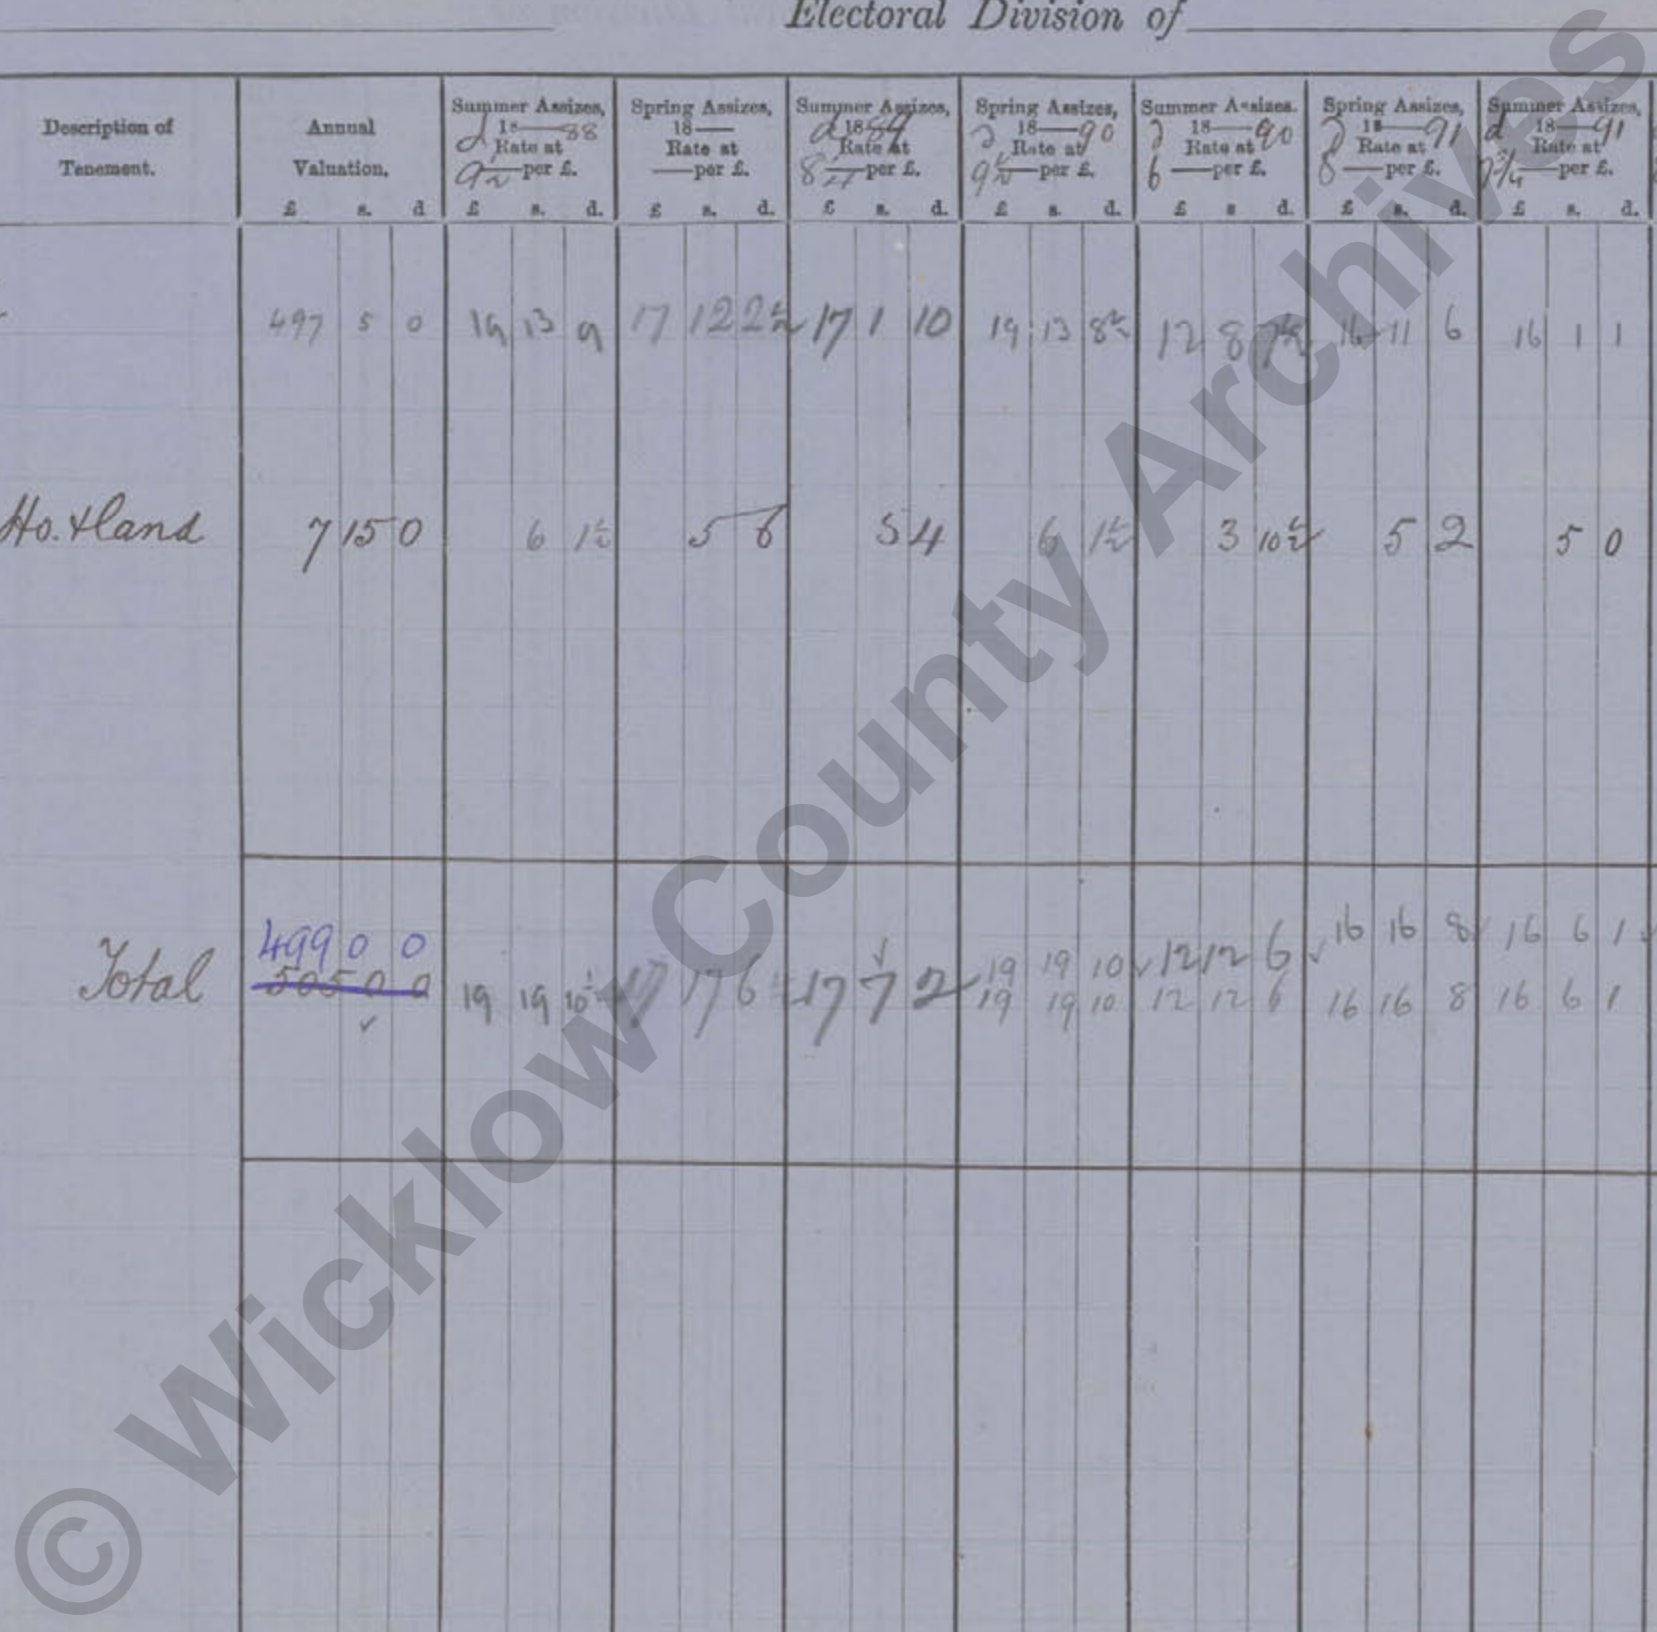 Electoral Division of
Description of Tenement. | Annual Valuation, £ s. d | Summer Assizes, 18—88 Rate at 9½ d —per £. £ s. d. | Spring Assizes, 18— Rate at —per £. £ s. d. | Summer Assizes, 18—89 Rate at 8¼ d —per £. £ s. d. | Spring Assizes, 18—90 Rate at 9½ d —per £. £ s. d. | Summer Assizes. 18—90 Rate at 6 d —per £. £ s d. | Spring Assizes, 18—91 Rate at 8 d —per £. £ s. d. | Summer Assizes, 18—91 Rate at 7¾ d —per £. £ s. d.
497 5 0 | 19 13 9 | 17 12 2½ | 17 1 10 | 19 13 8½ | 12 8 7½ | 16 11 6 | 16 1 1
Ho. & land | 7 15 0 | 6 1½ | 5 6 | 5 4 | 6 1½ | 3 10½ | 5 2 | 5 0
499 0 0 | 19 19 10 | 12 12 6 | 16 16 8 | 16 6 1
Total | 505 0 0 | 19 19 10½ | 17 17 6 | 17 7 2 | 19 19 10 | 12 12 6 | 16 16 8 | 16 6 1
© Wicklow County Archives